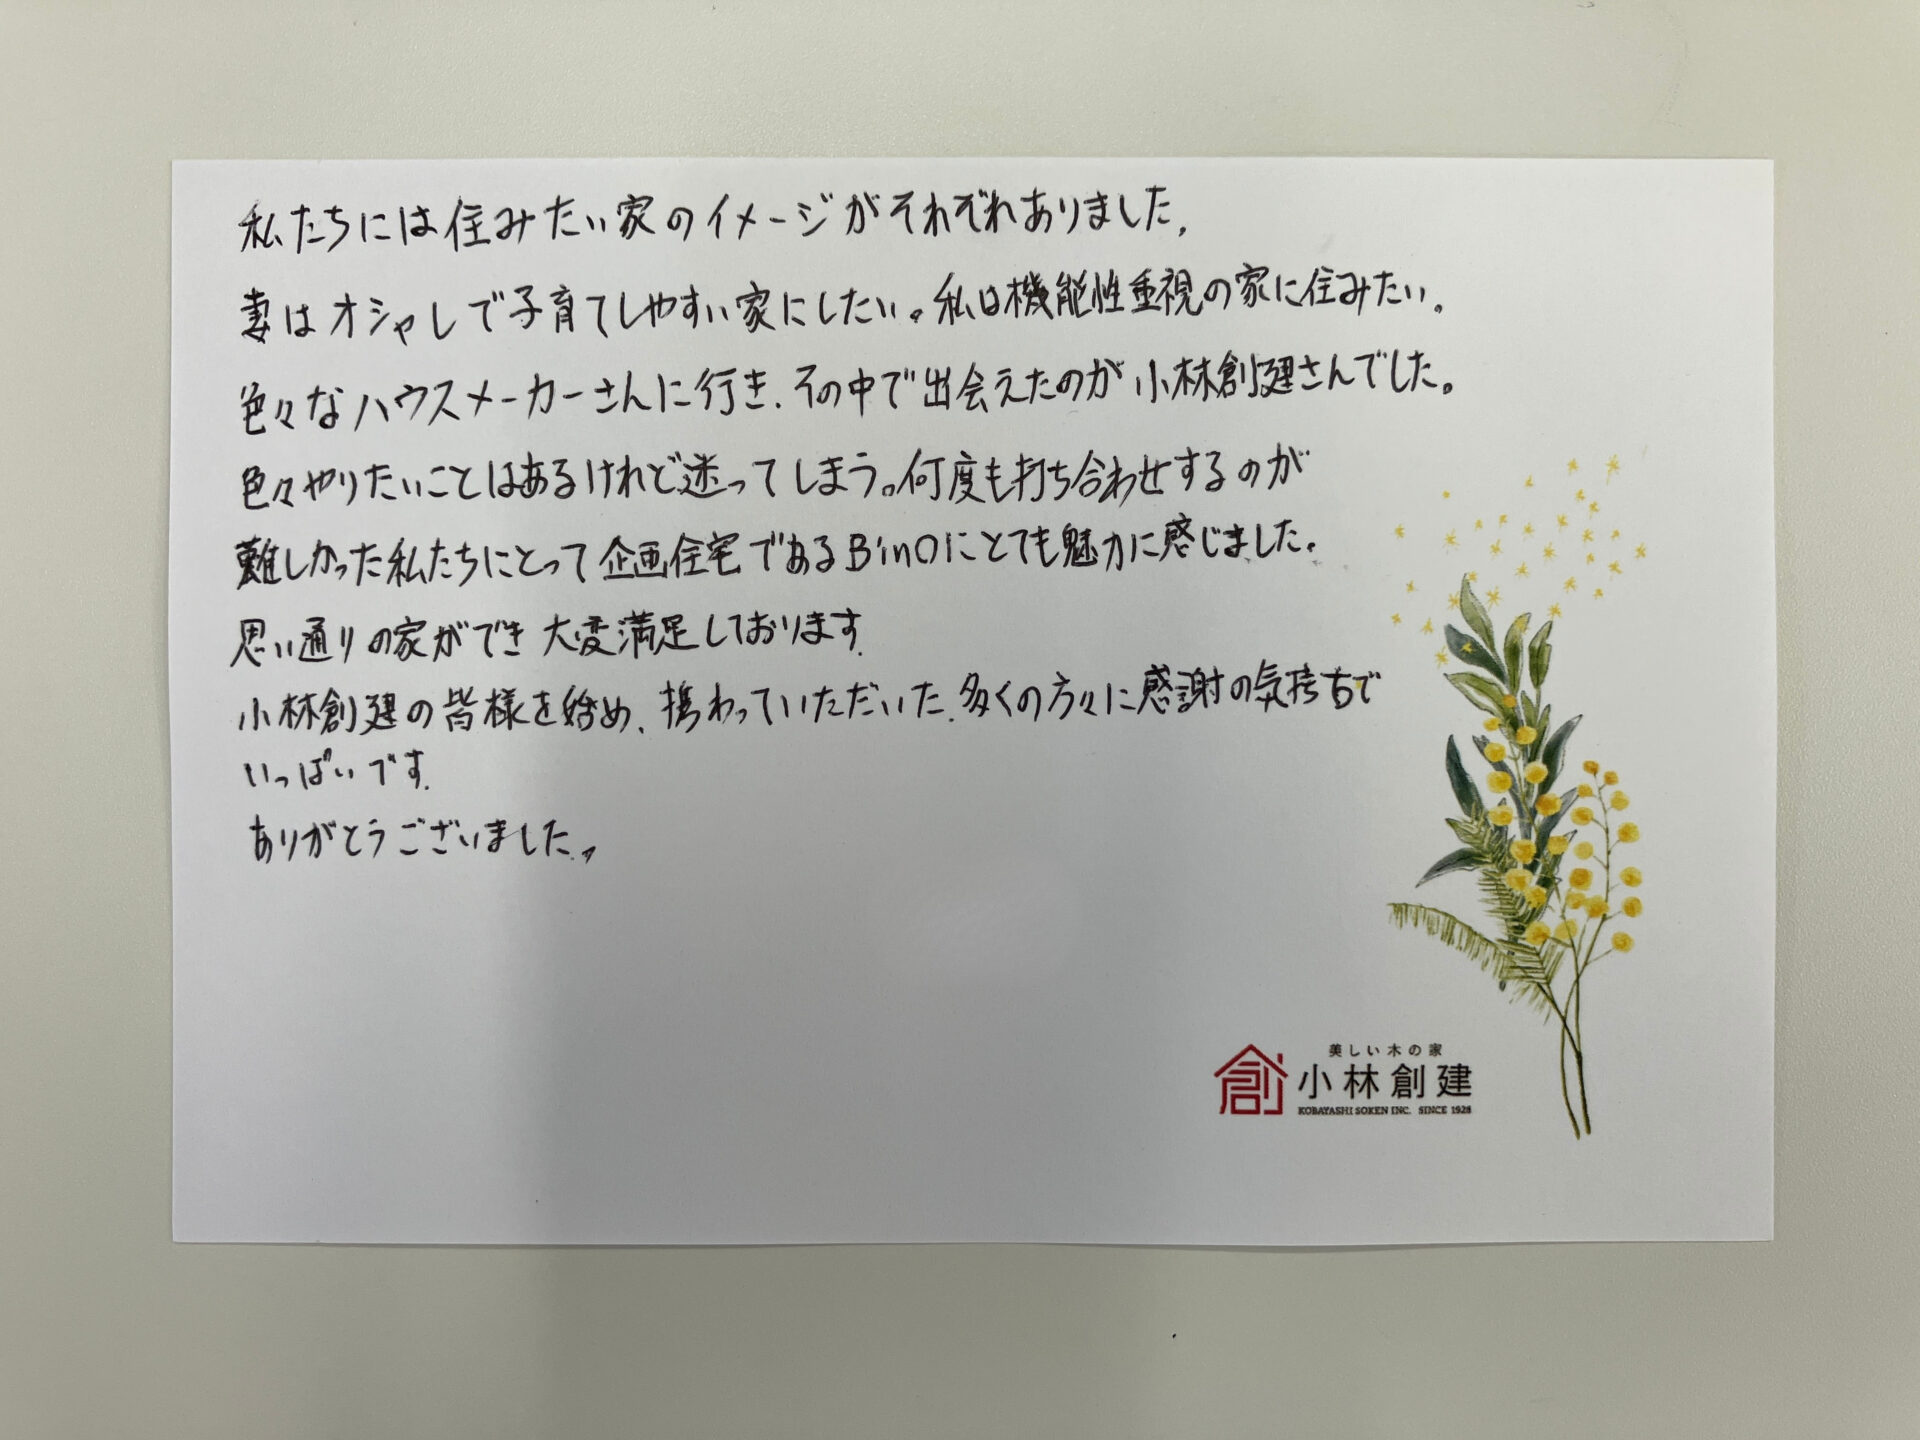 私たちには住みたい家のイメージがそれぞれありました.
妻はオシャレで子育てしやすい家にしたい。私は機能性重視の家に住みたい。
色々なハウスメーカーさんに行き、その中で出会えたのが小林創建さんでした。
色々やりたいことはあるけれど迷ってしまう。何度も打ち合わせするのが
難しかった私たちにとって企画住宅であるBinOにとても魅力に感じました。
思い通りの家ができ大変満足しております.
小林創建の皆様を始め、携わっていただいた、多くの方々に感謝の気持ちで
いっぱいです.
ありがとうございました。
美しい木の家
創 小林創建
KOBAYASHI SOKEN INC. SINCE 1928